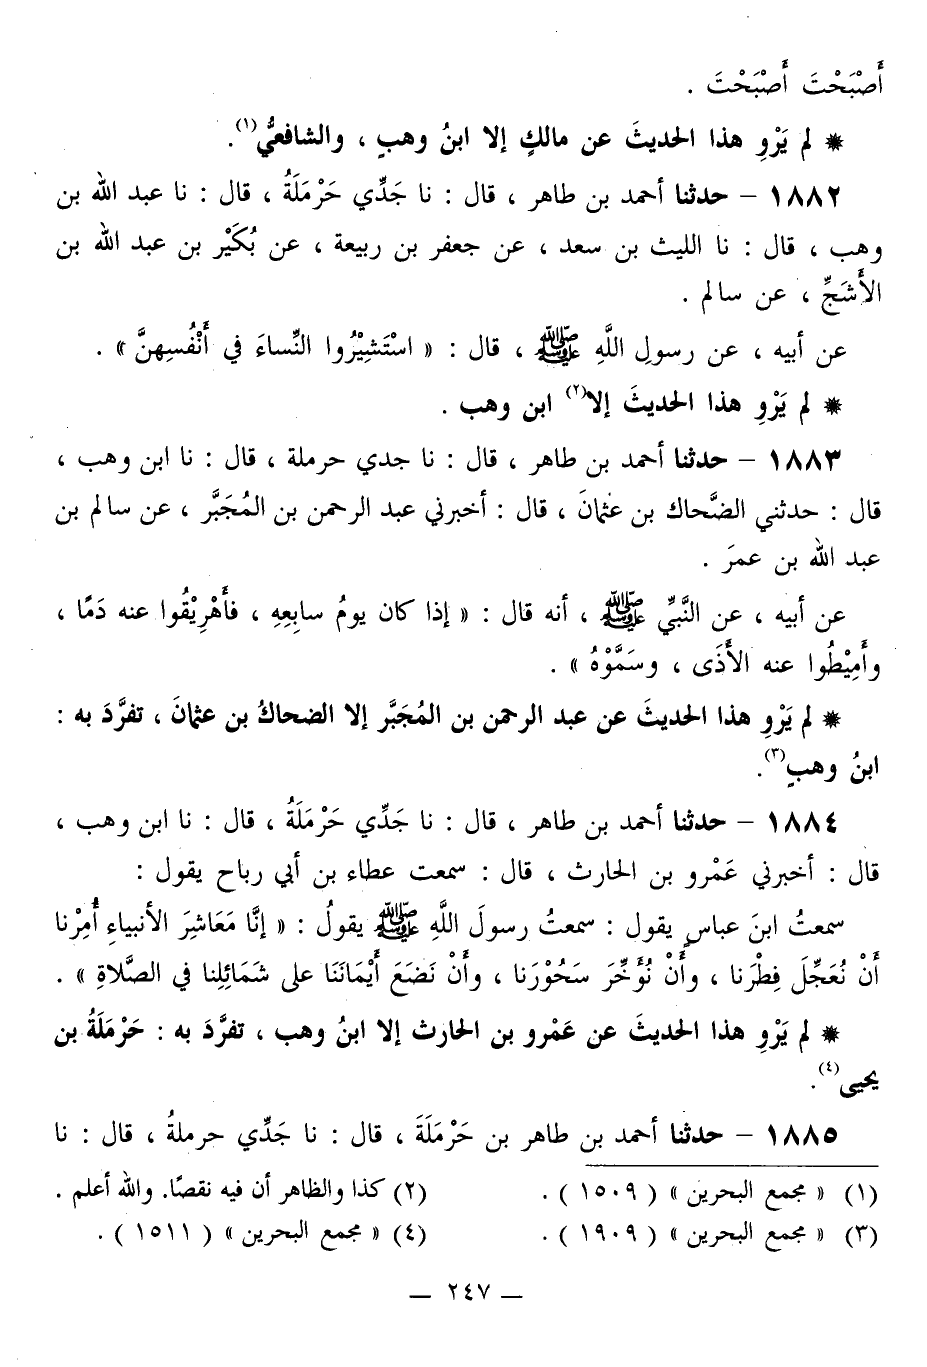 أَصْبَحْتَ أَصْبَحْتَ .
* لم يَرْوِ هذا الحديثَ عن مالكٍ إلا ابنُ وهبٍ ، والشافعيُّ(١).
١٨٨٢ – حدثنا أحمد بن طاهر ، قال : نا جَدِّي حَرْمَلَةُ ، قال : نا عبد الله بن
وهب ، قال : نا الليث بن سعد ، عن جعفر بن ربيعة ، عن بُكَيْر بن عبد الله بن
الأَشَجِّ ، عن سالم .
عن أبيه ، عن رسولِ اللَّهِ ﷺ ، قال : « اسْتَشِيْرُوا النِّساءَ في أَنْفُسِهِنَّ » .
* لم يَرْوِ هذا الحديثَ إلا(٢) ابن وهب .
١٨٨٣ – حدثنا أحمد بن طاهر ، قال : نا جدي حرملة ، قال : نا ابن وهب ،
قال : حدثني الضَّحاك بن عثمانَ ، قال : أخبرني عبد الرحمن بن المُجَبَّر ، عن سالم بن
عبد الله بن عمرَ .
عن أبيه ، عن النَّبيِّ ﷺ ، أنه قال : « إذا كان يومُ سابِعِهِ ، فأَهْرِيْقُوا عنه دَمًا ،
وأَمِيْطُوا عنه الأَذَى ، وسَمَّوْهُ » .
* لم يَرْوِ هذا الحديثَ عن عبد الرحمن بن المُجَبَّر إلا الضحاكُ بن عثمانَ ، تفرَّدَ به :
ابنُ وهبٍ(٣).
١٨٨٤ – حدثنا أحمد بن طاهر ، قال : نا جَدِّي حَرْمَلَةُ ، قال : نا ابن وهب ،
قال : أخبرني عَمْرو بن الحارث ، قال : سمعت عطاء بن أبي رباح يقول :
سمعتُ ابنَ عباسٍ يقول : سمعتُ رسولَ اللَّهِ ﷺ يقولُ : « إنَّا مَعَاشِرَ الأنبياءِ أُمِرْنا
أَنْ نُعَجِّلَ فِطْرَنا ، وأَنْ نُؤَخِّرَ سَحُوْرَنا ، وأَنْ نَضَعَ أَيْمَانَنَا على شَمَائِلِنا في الصَّلاةِ » .
* لم يَرْوِ هذا الحديثَ عن عَمْرو بن الحارث إلا ابنُ وهب ، تفرَّدَ به : حَرْمَلَةُ بن
يحيى(٤).
١٨٨٥ – حدثنا أحمد بن طاهر بن حَرْمَلَةَ ، قال : نا جَدِّي حرملةُ ، قال : نا
(١) « مجمع البحرين » ( ١٥٠٩ ) . (٢) كذا والظاهر أن فيه نقصًا. والله أعلم .
(٣) « مجمع البحرين » ( ١٩٠٩ ) . (٤) « مجمع البحرين » ( ١٥١١ ) .
— ٢٤٧ —